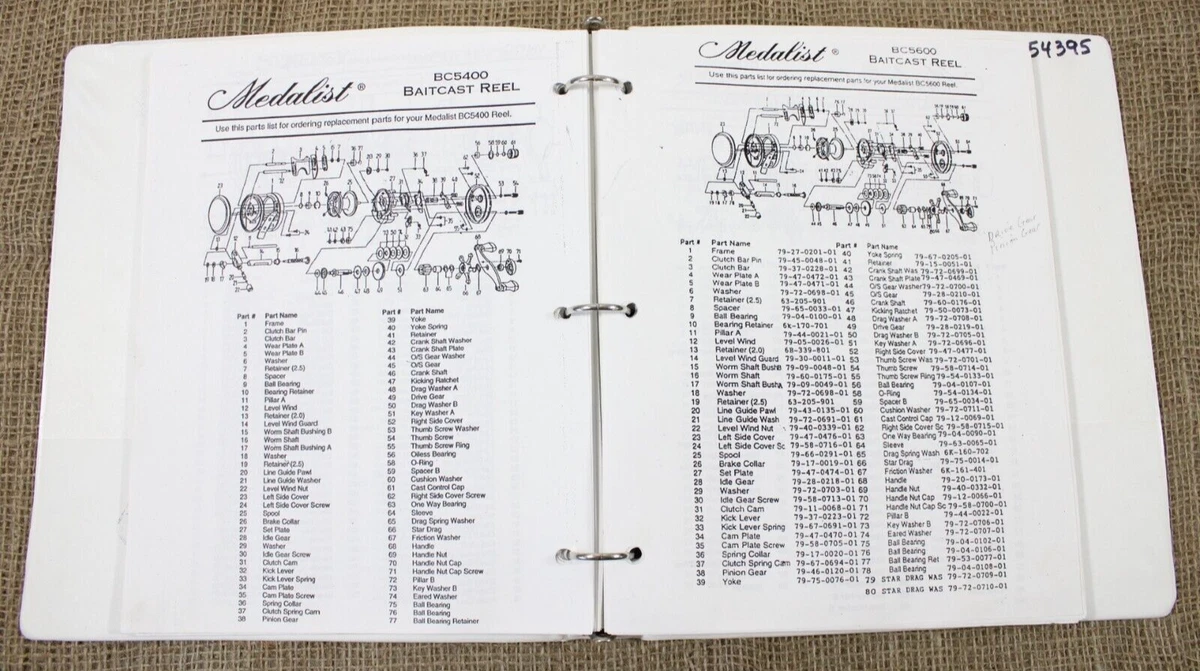 Medalist ®
BC5400
BAITCAST REEL
Use this parts list for ordering replacement parts for your Medalist BC5400 Reel.
Part # Part Name
1 Frame
2 Clutch Bar Pin
3 Clutch Bar
4 Wear Plate A
5 Wear Plate B
6 Washer
7 Retainer (2.5)
8 Spacer
9 Ball Bearing
10 Bearing Retainer
11 Pillar A
12 Level Wind
13 Retainer (2.0)
14 Level Wind Guard
15 Worm Shaft Bushing A
16 Worm Shaft
17 Worm Shaft Bushing A
18 Washer
19 Retainer (2.5)
20 Line Guide Pawl
21 Line Guide Washer
22 Level Wind Nut
23 Left Side Cover
24 Left Side Cover Screw
25 Spool
26 Brake Collar
27 Set Plate
28 Idle Gear
29 Washer
30 Idle Gear Screw
31 Clutch Cam
32 Kick Lever
33 Kick Lever Spring
34 Cam Plate
35 Cam Plate Screw
36 Spring Collar
37 Clutch Spring Cam
38 Pinion Gear
Part # Part Name
39 Yoke
40 Yoke Spring
41 Retainer
42 Crank Shaft Washer
43 Crank Shaft Plate
44 O/S Gear Washer
45 O/S Gear
46 Crank Shaft
47 Kicking Ratchet
48 Drag Washer A
49 Drive Gear
50 Drag Washer B
51 Key Washer A
52 Right Side Cover
53 Thumb Screw Washer
54 Thumb Screw
55 Thumb Screw Ring
56 Oiless Bearing
58 O-Ring
59 Spacer B
60 Cushion Washer
61 Cast Control Cap
62 Right Side Cover Screw
63 One Way Bearing
64 Sleeve
65 Drag Spring Washer
66 Star Drag
67 Friction Washer
68 Handle
69 Handle Nut
70 Handle Nut Cap
71 Handle Nut Cap Screw
72 Pillar B
73 Key Washer B
74 Eared Washer
75 Ball Bearing
76 Ball Bearing
77 Ball Bearing Retainer
Medalist ®
BC5600
BAITCAST REEL
54395
Use this parts list for ordering replacement parts for your Medalist BC5600 Reel.
Part # Part Name Part # Part Name
1 Frame 79-27-0201-01 40 Yoke Spring 79-67-0205-01
2 Clutch Bar Pin 79-45-0048-01 41 Retainer 79-15-0051-01
3 Clutch Bar 79-37-0228-01 42 Crank Shaft Was 79-72-0699-01
4 Wear Plate A 79-47-0472-01 43 Crank Shaft Plate 79-47-0469-01
5 Wear Plate B 79-47-0471-01 44 O/S Gear Washer 79-72-0700-01
6 Washer 79-72-0698-01 45 O/S Gear 79-28-0210-01
7 Retainer (2.5) 63-205-901 46 Crank Shaft 79-60-0176-01
8 Spacer 79-65-0033-01 47 Kicking Ratchet 79-50-0073-01
9 Ball Bearing 79-04-0100-01 48 Drag Washer A 79-72-0708-01
10 Bearing Retainer 6k-170-701 49 Drive Gear 79-28-0219-01
11 Pillar A 79-44-0021-01 50 Drag Washer B 79-72-0705-01
12 Level Wind 79-05-0026-01 51 Key Washer A 79-72-0696-01
13 Retainer (2.0) 68-339-801 52 Right Side Cover 79-47-0477-01
14 Level Wind Guard 79-30-0011-01 53 Thumb Screw Was 79-72-0701-01
15 Worm Shaft Bushi 79-09-0048-01 54 Thumb Screw 79-58-0714-01
16 Worm Shaft 79-60-0175-01 55 Thumb Screw Ring 79-54-0133-01
17 Worm Shaft Bushi 79-09-0049-01 56 Ball Bearing 79-04-0107-01
18 Washer 79-72-0698-01 58 O-Ring 79-54-0134-01
19 Retainer (2.5) 63-205-901 59 Spacer B 79-65-0034-01
20 Line Guide Pawl 79-43-0135-01 60 Cushion Washer 79-72-0711-01
21 Line Guide Wash 79-72-0691-01 61 Cast Control Cap 79-12-0069-01
22 Level Wind Nut 79-40-0339-01 62 Right Side Cover Sc 79-58-0715-01
23 Left Side Cover 79-47-0476-01 63 One Way Bearing 79-04-0090-01
24 Left Side Cover Sc 79-58-0716-01 64 Sleeve 79-63-0065-01
25 Spool 79-66-0291-01 65 Drag Spring Wash 6K-160-702
26 Brake Collar 79-17-0019-01 66 Star Drag 79-75-0014-01
27 Set Plate 79-47-0474-01 67 Friction Washer 6K-161-401
28 Idle Gear 79-28-0218-01 68 Handle 79-20-0173-01
29 Washer 79-72-0703-01 69 Handle Nut 79-40-0332-01
30 Idle Gear Screw 79-58-0713-01 70 Handle Nut Cap 79-12-0066-01
31 Clutch Cam 79-11-0068-01 71 Handle Nut Cap Sc 79-58-0700-01
32 Kick Lever 79-37-0223-01 72 Pillar B 79-44-0022-01
33 Kick Lever Spring 79-67-0691-01 73 Key Washer B 79-72-0706-01
34 Cam Plate 79-47-0470-01 74 Eared Washer 79-72-0707-01
35 Cam Plate Screw 79-58-0705-01 75 Ball Bearing 79-04-0102-01
36 Spring Collar 79-17-0020-01 76 Ball Bearing 79-04-0106-01
37 Clutch Spring Cam 79-67-0694-01 77 Ball Bearing Ret 79-53-0077-01
38 Pinion Gear 79-46-0120-01 78 Ball Bearing 79-04-0108-01
39 Yoke 79-75-0076-01 79 STAR DRAG WAS 79-72-0709-01
80 STAR DRAG WAS 79-72-0710-01